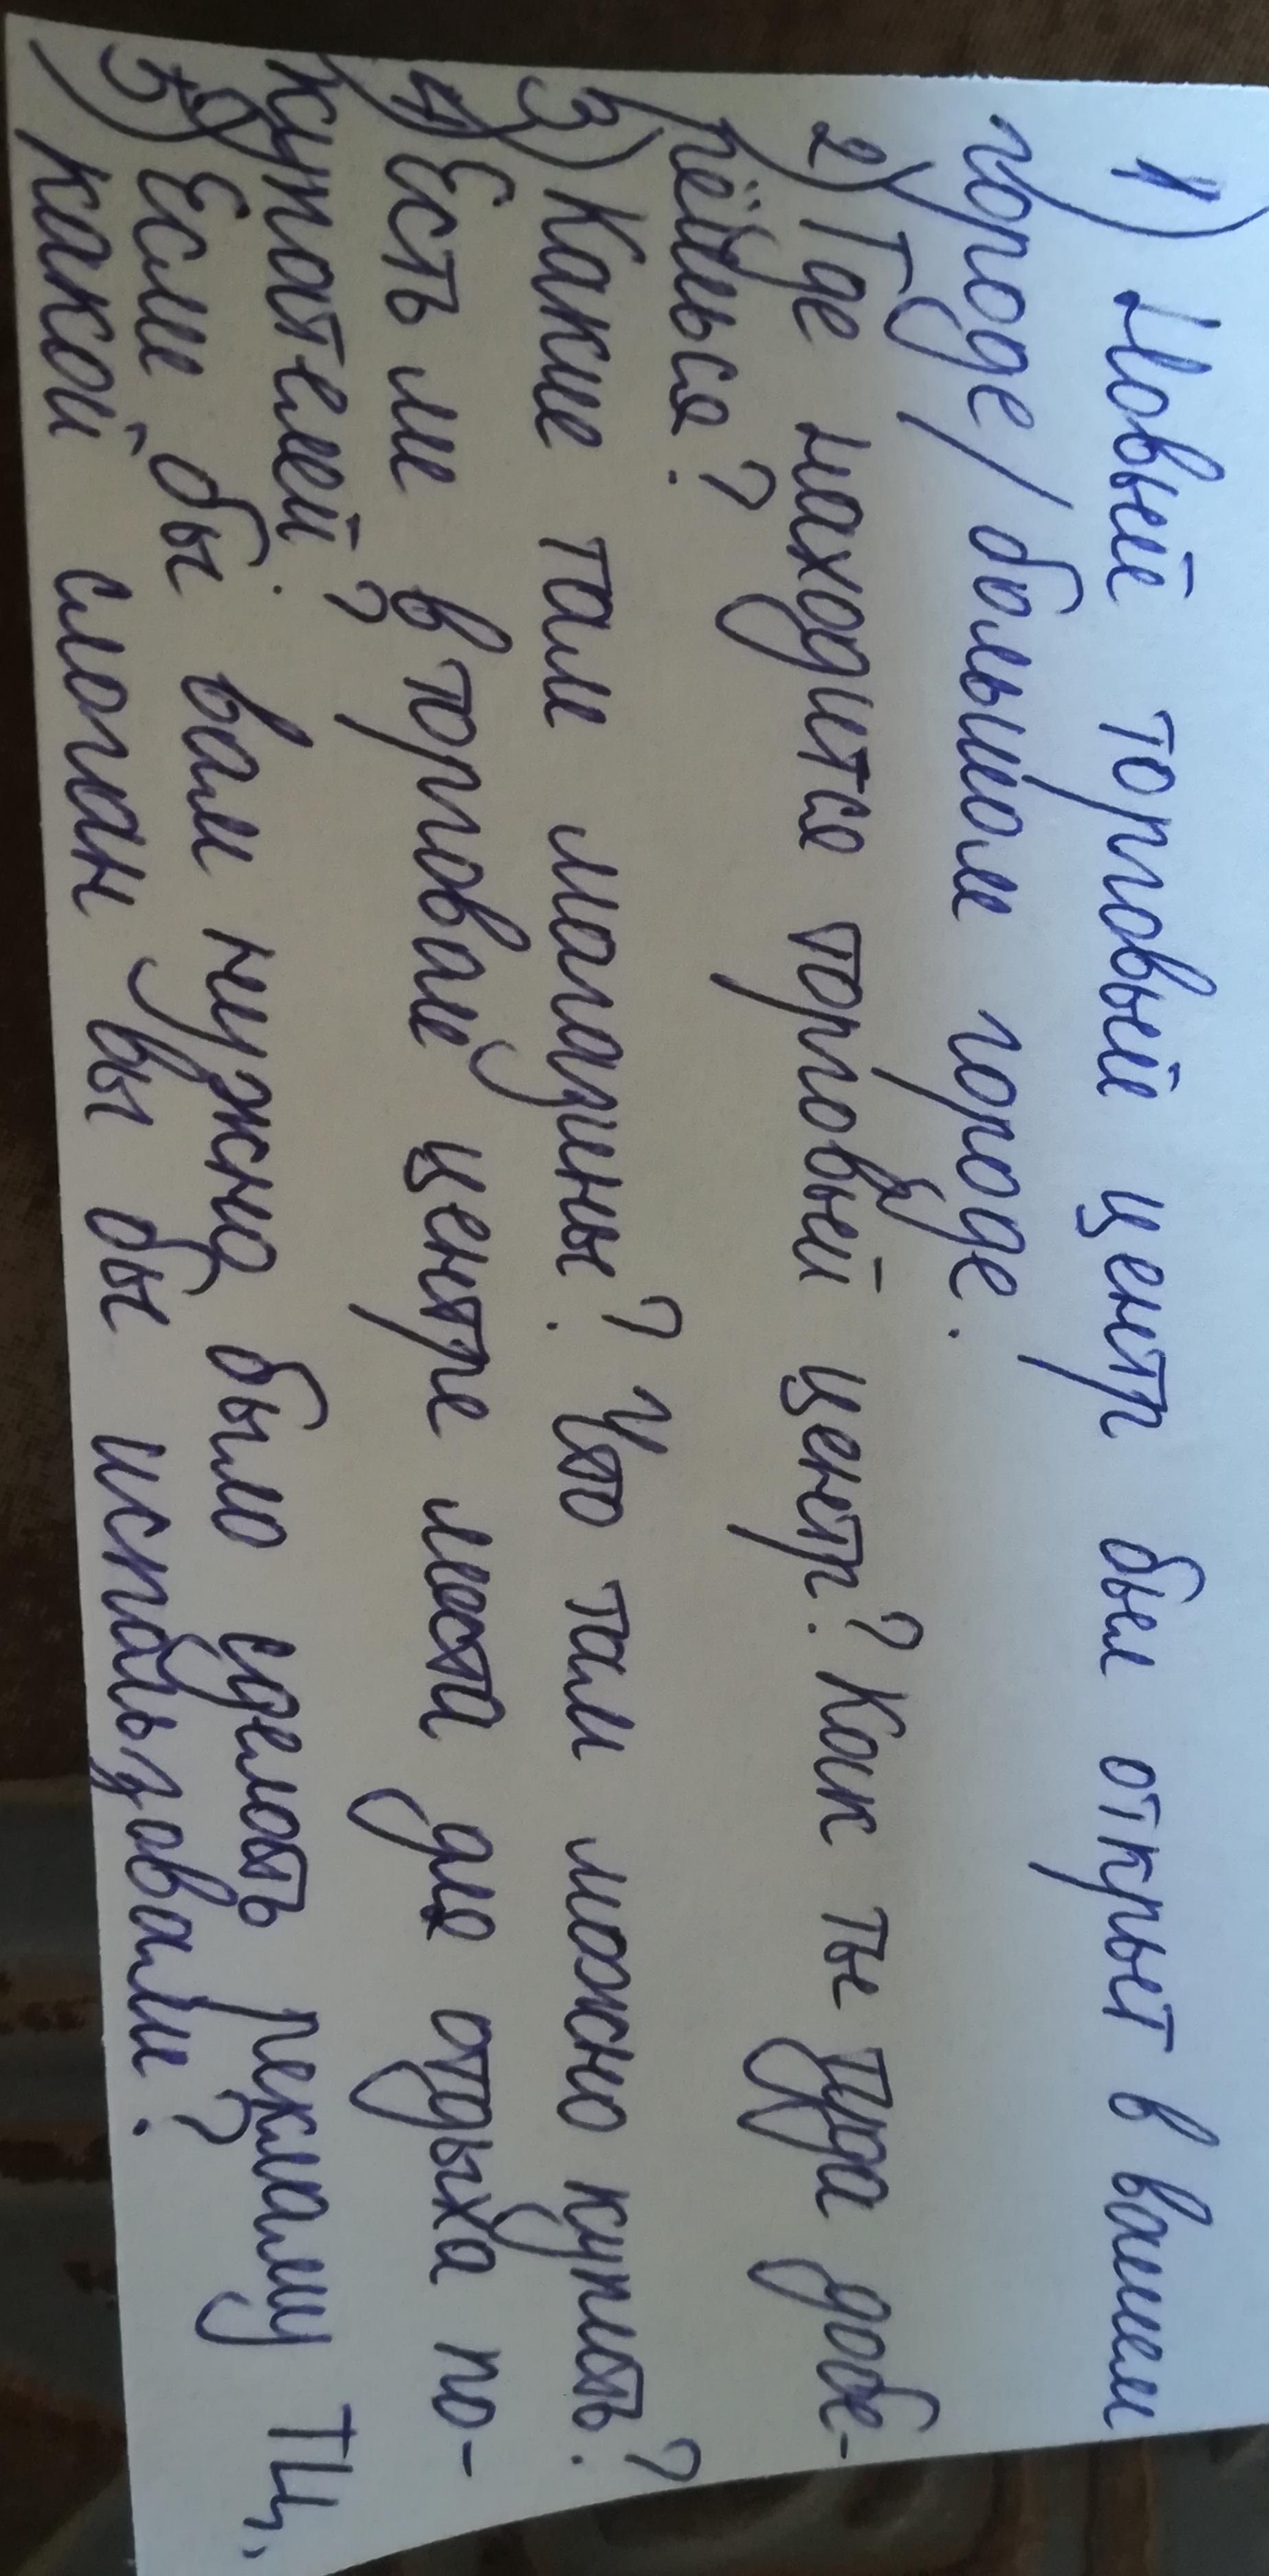 1) Новый торговый центр был открыт в вашем
городе / большом городе.
2) Где находится торговый центр? Как ты туда добе-
рёшься?
3) Какие там магазины? Что там можно купить?
4) Есть ли в торговом центре места для отдыха по-
купателей?
5) Если бы вам нужно было сделать рекламу ТЦ,
какой слоган вы бы использовали?